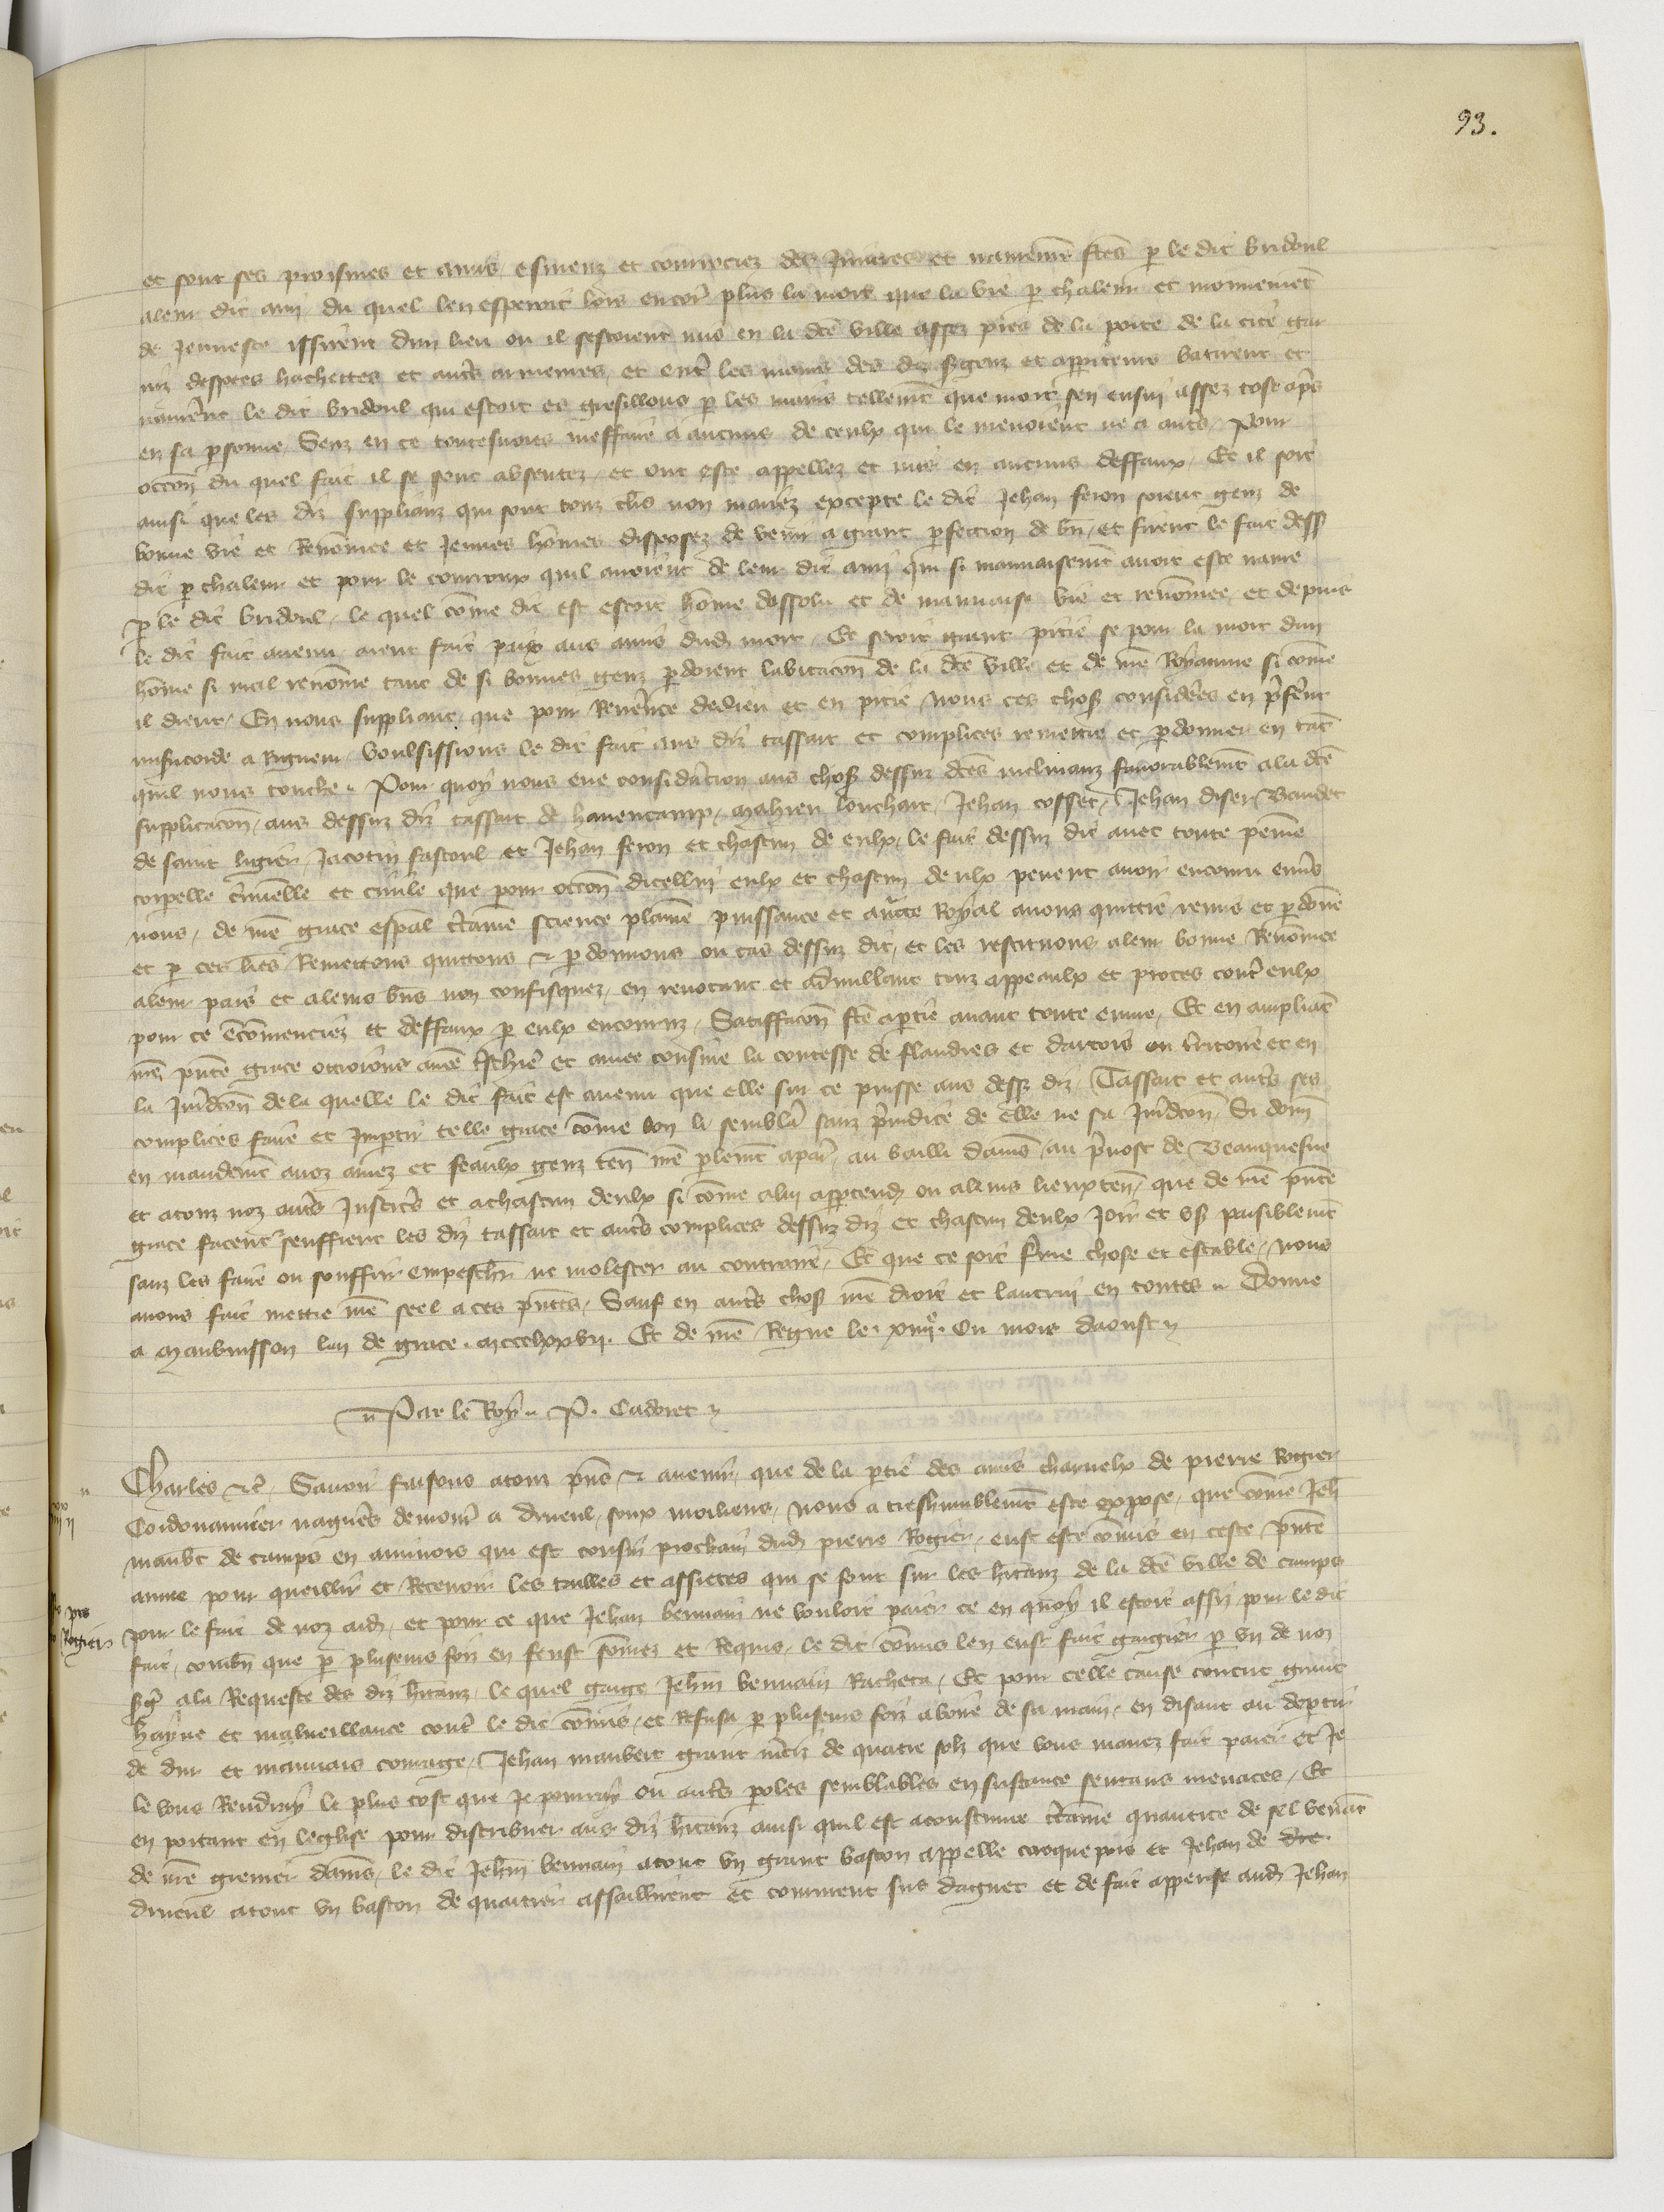 93.
et sont ses proismes et amis esmeuz et courrociez des Iniures et navreme͂t fc͂es p̱ le dit bridoul
aleur dit ami du quel len esperoit lors encor̾ plus la mort que la vie p̱ chaleur et mouueme͂t
de Jeunesce issirent dun lieu ou il sestoient mis en la dc͂e ville assez pres de la porte de la cité gar
niz despees hachettes et aut̾s armeures et ent̾ les mains des diz s̾genz et appiteurs batirent et
navrer̾nt le dit bridoul qui estoit es gresillons p̱ les mains telleme͂t que mort sen ensui assez tost ap̾s
en sa p̱sonne Senz en ce toutesuoies meffaire a aucuns de ceulx qui le menoient ne a aut̾s Pour
occo͂n du quel fait il se sont absentez et ont este appellez et mis en aucuns deffaux Et il soit
ainsi que les diz supplianz qui sont touz cl̾s non mariez excepte le dit Jehan feron soient genz de
bonne vie et Reno͂mee et Jeunes ho͂mes disposez de venir a grant p̱fection de bie͂ et firent le fait dess̾
dit p̱ chaleur et pour le courroux quil auoient de leur dit amy qui si mauuaiseme͂t auoit este navre
p̱ le dit bridoul le quel co͂me dit est estoit ho͂me dissolu et de mauuaise vie et reno͂mee et depuis
le dit fait auenu aient fait paix aus amis dud̾ mort Et seroit grant pitie se pour la mort dun
ho͂me si mal reno͂me tant de si bonnes genz p̱doient labitacio͂n de la dc͂e ville et de nr͂e Royaume si co͂me
il dient En nous suppliant que pour Reuer̾nce de dieu et en pitie nous ces chos̾ consider̾es en p̾fer̾nt
mis̾icorde a Rigueur voulsissions le dit fait aus diz tassart et complices remettre et p̱donner en ta͂t
quil nous touche Pour quoy nous eue consider̾acion aus chos̾ dessuz dc͂es inclinanz fauorableme͂t a la dc͂e
supplicacio͂n aus dessuz diz tassart de hauencamp mahieu louchart Jehan cosset Jehan diser Baudet
de saint ligier Jacotin fastoul et Jehan feron et chascun de eulx le fait dessuz dit auec toute peine
corpelle c̾minelle et ciuile que pour occo͂n dicellui eulx et chascun deulx peuent auoir encouru enu̾s
nous de nr͂e grace esp̱al c̾taine science plaine puissance et auct̾e Royal auons quittie remis et p̱donne
et p̱ ces lr͂es Remettons quittons ⁊ p̱donnons ou cas dessuz dit et les restituons a leur bonne Reno͂mee
aleur pais et aleurs bie͂s non confisquez en reuocant et adnullant touz appeaulx et proces cont̾ eulx
pour ce enco͂menciez et deffaux p̱ eulx encouruz Satiffacio͂n fc͂e a p̱tie auant toute euure Et en ampliat̾
nr͂e p̾nte grace octroions a nr͂e t̾schier̾ et amee cousine la contesse de flandres et dartois ou t̾ritoire et en
la Jurid̾co͂n de la quelle le dit fait est auenu que elle sur ce puisse aus dess̾ diz Tassart et aut̾s ses
complices faire et Imp̱tir telle grace co͂me bon li sembler̾a sanz p̾iudice de elle ne sa Jurid̾co͂n Si donn̾
en mandeme͂t a noz amez et feaulx genz ten̾ nr͂e p̱leme͂t a paris au bailli damie͂s au p̾uost de Beauquesne
et a touz noz aut̾s Justic̾s et a chascun deulx si co͂me a lui app̱tend̾ ou a leurs lieuxten̾ que de nr͂e p̾nte
grace facent seuffrent les diz tassart et aut̾s complices dessuz diz et chascun deulx Joir et us̾ paisibleme͂t
sanz les faire ou souffrir empeschier ne molester au contraire Et que ce soit ferme chose et estable nous
auons fait mettre nr͂e seel a ces p̾ntes Sauf en aut̾s chos̾ nr͂e droit et lautrui en toutes Donne
a Maubuisson lan de grace mccclxxvij. Et de nr͂e Regne le xiiij͛. Ou mois daoust
Par le Roy P. Cadoret
Charles ⁊c̾ Sauoir faisons a touz p̾ns ⁊ auenir que de la p̱tie des amis charnelx de pierre Rogier
Cordouannier nagueres demour̾ a drueul soux moiliens nous a treshumbleme͂t este expose que co͂me Jeh̾
maub̾t de camps en aminois qui est cousin prochain dud̾ pierre Rogier eust este co͂mis en ceste p̾nte
annee pour queillir et Receuoir les tailles et assietes qui se font sur les hita͂nz de la dc͂e ville de camps
pour le fait de noz aid̾ et pour ce que Jehan bennain ne vouloit paier ce en quoy il estoit assis pour le dit
fait combie͂ que p̱ plusieurs foiz en feust so͂mez et Requis le dit co͂mis len eust fait gaigier p̱ vn de noz
s̾g̾ a la Requeste des diz hita͂nz le quel gaige Jeh̾n bennain Racheta Et pour celle cause concut grant
hayne et malueillance cont̾ le dit co͂mis et Refusa p̱ plusieurs foiz a boire de sa main en disant au dep̱tir
de dur et mauuais courage Jehan maubert grant mer̾ciz de quatre solz que vous mauez fait paier et Je
le vous Rendray le plus tost que Je pourray ou aut̾s p̱oles semblables en sustance sentans menaces Et
en portant en leglise pour distribuer aus diz hita͂nz ainsi quil est acoustume c̾taine quantite de sel vena͂t
de nr͂e grenier damie͂s le dit Jeh̾n bennain atout vn grant baston appelle croquepois et Jehan de dre
drueul atout vn baston de quartier assaillirent et coururent sus daguet et de fait appense aud̾ Jehan
Rogier